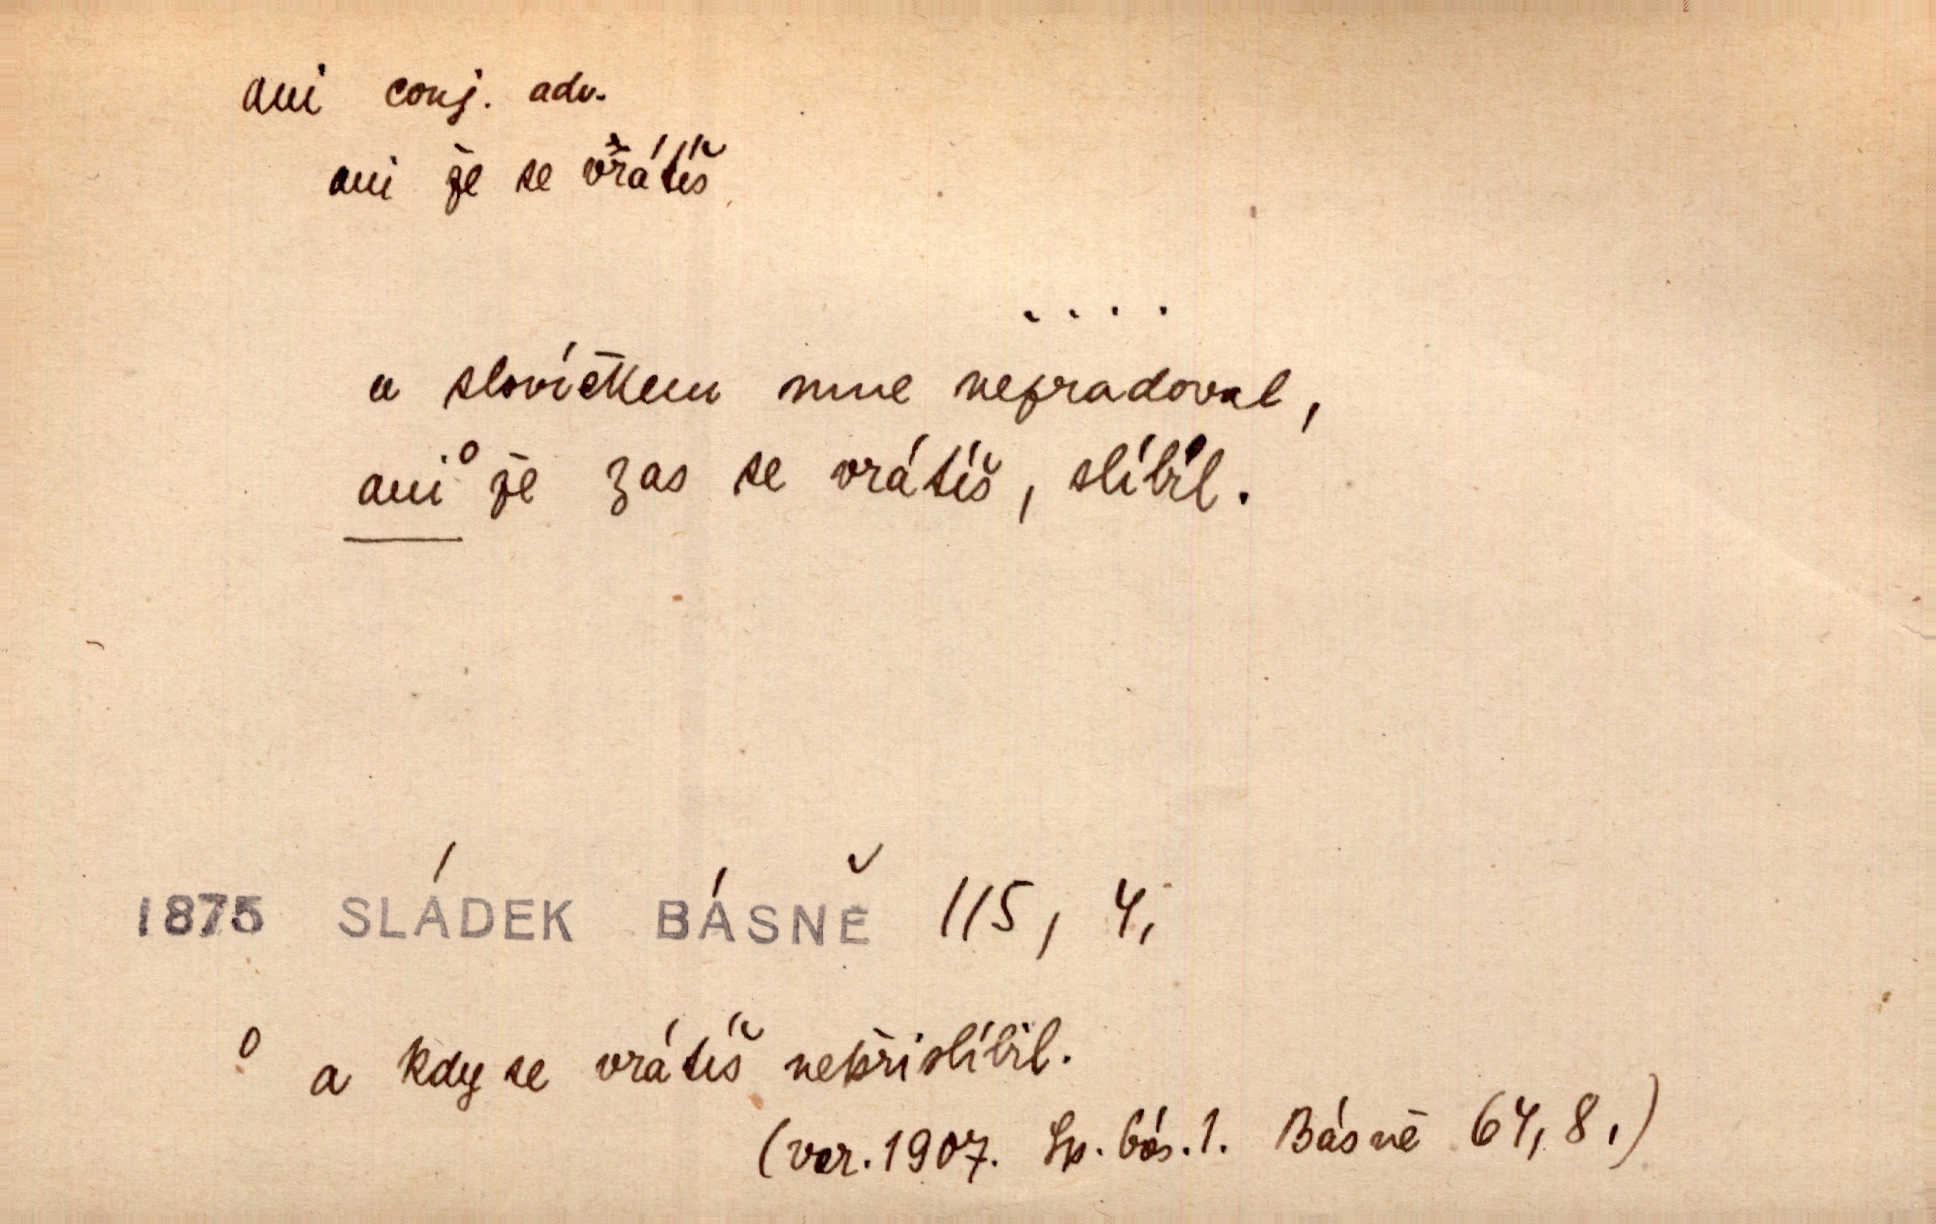 ani conj. adv.
ani že se vrátíš
. . . .
a slovíčkem mne nepradoval,
ani° že zas se vrátíš, slíbil.
1875 SLÁDEK BÁSNĚ 115, 4,
° a kdy se vrátíš nepřislíbil.
(var. 1907. Sp. bás. 1. Básně 64, 8,)